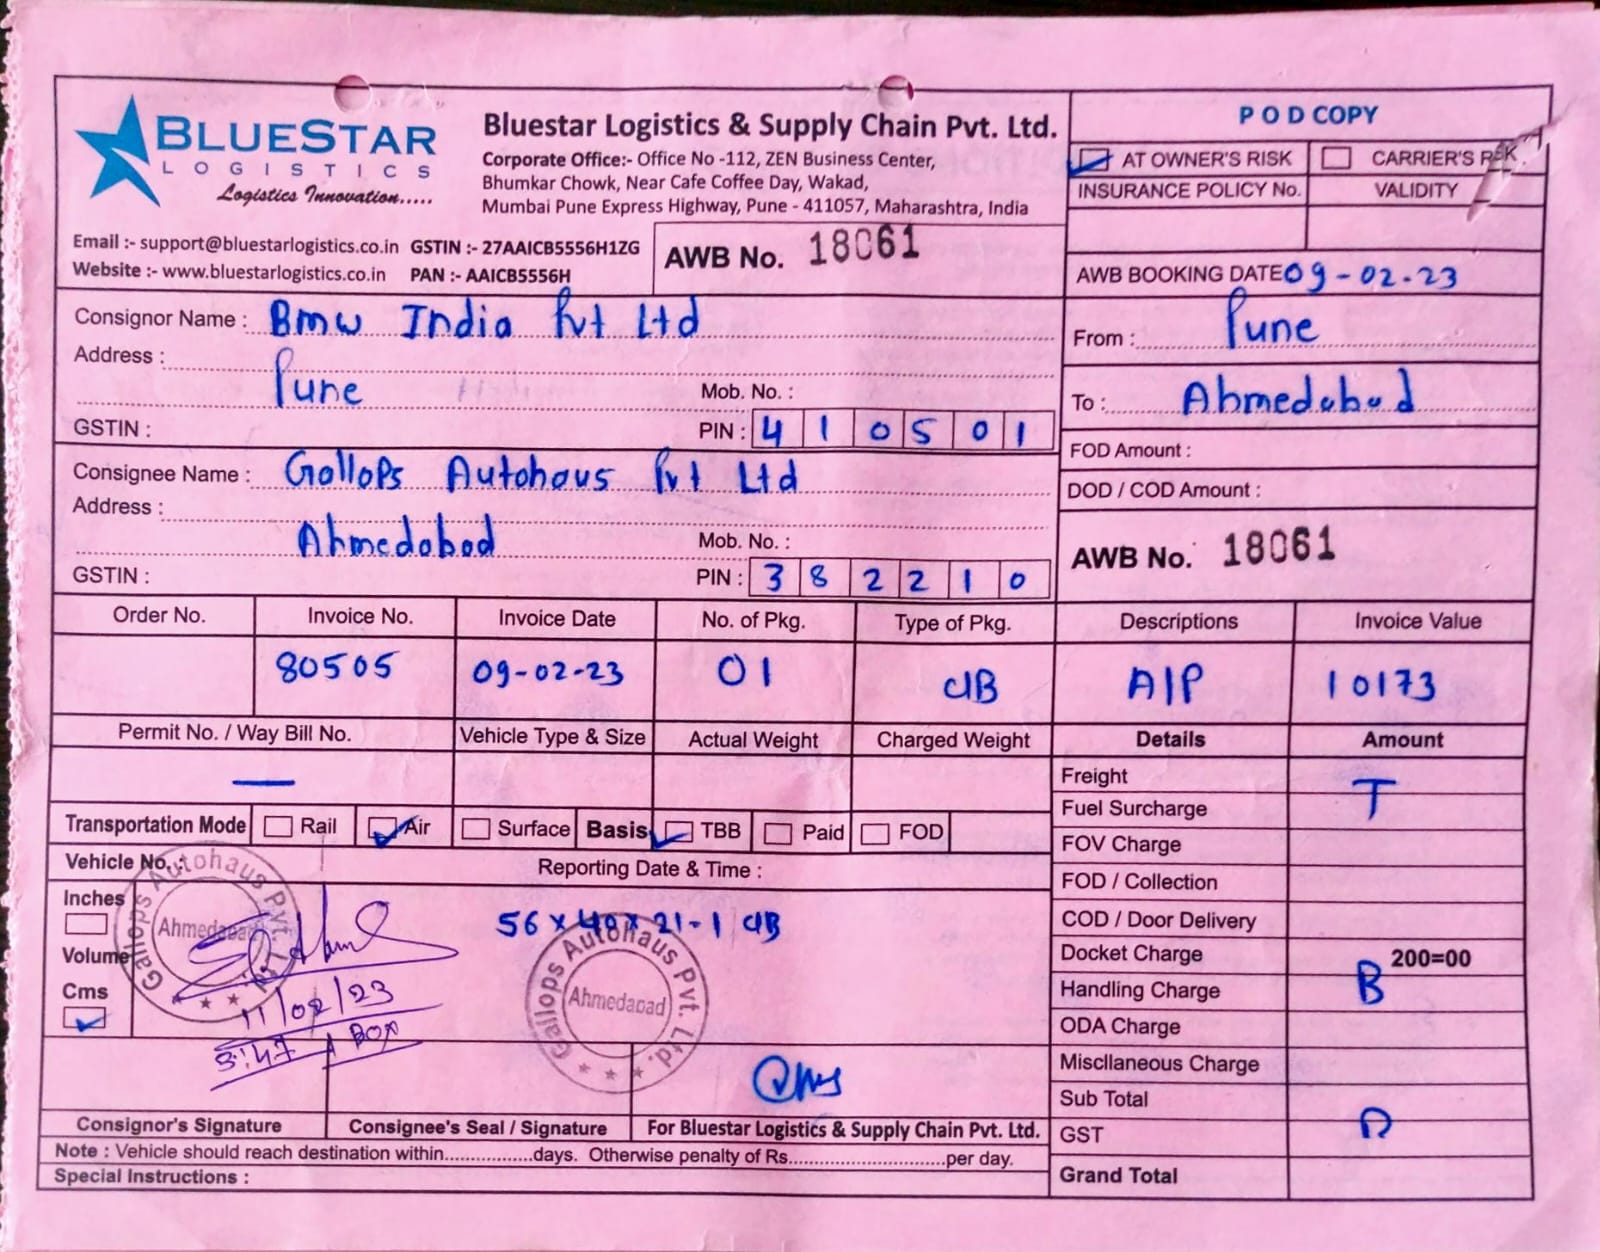 BLUESTAR
LOGISTICS
Logistics Innovation.....
Bluestar Logistics & Supply Chain Pvt. Ltd.
Corporate Office:- Office No -112, ZEN Business Center,
Bhumkar Chowk, Near Cafe Coffee Day, Wakad,
Mumbai Pune Express Highway, Pune - 411057, Maharashtra, India
Email :- support@bluestarlogistics.co.in GSTIN :- 27AAICB5556H1ZG
Website :- www.bluestarlogistics.co.in PAN :- AAICB5556H
AWB No. 18061
POD COPY
AT OWNER'S RISK CARRIER'S RISK
INSURANCE POLICY No. VALIDITY
AWB BOOKING DATE 09-02-23
Consignor Name : Bmw India Pvt Ltd
Address :
Pune Mob. No. :
GSTIN : PIN : 410501
From : Pune
To : Ahmedabad
Consignee Name : Gallops Autohaus Pvt Ltd
Address :
Ahmedabad Mob. No. :
GSTIN : PIN : 382210
FOD Amount :
DOD / COD Amount :
AWB No. 18061
Order No. Invoice No. Invoice Date No. of Pkg. Type of Pkg. Descriptions Invoice Value
80505 09-02-23 01 C/B A/P 10173
Permit No. / Way Bill No. Vehicle Type & Size Actual Weight Charged Weight Details Amount
—
Transportation Mode Rail Air Surface Basis TBB Paid FOD
Vehicle No. : Reporting Date & Time :
Inches
Volume
Cms
56 x 48 x 21 - 1 C/B
Gallops Autohaus Pvt. Ltd.
Ahmedabad
11/02/23
3:47 1 BOX
Gallops Autohaus Pvt. Ltd.
Ahmedabad
Freight T
Fuel Surcharge
FOV Charge
FOD / Collection
COD / Door Delivery
Docket Charge 200=00
Handling Charge B
ODA Charge
Miscllaneous Charge
Sub Total
GST
Grand Total
Consignor's Signature Consignee's Seal / Signature For Bluestar Logistics & Supply Chain Pvt. Ltd.
Note : Vehicle should reach destination within................days. Otherwise penalty of Rs............................per day.
Special Instructions :